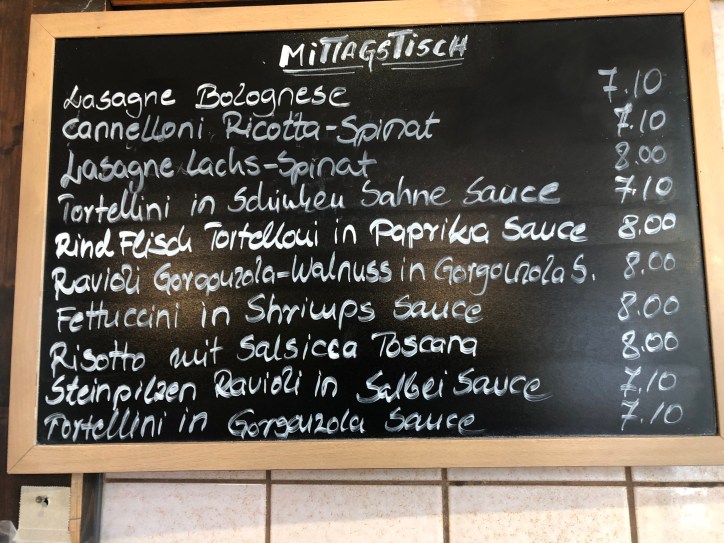 MITTAGSTISCH
Lasagne Bolognese 7.10
Cannelloni Ricotta-Spinat 7.10
Lasagne Lachs-Spinat 8.00
Tortellini in Schinken Sahne Sauce 7.10
Rind Flisch Tortelloni in Paprika Sauce 8.00
Ravioli Gorgonzola-Walnuss in Gorgonzola S. 8.00
Fettuccini in Shrimps Sauce 8.00
Risotto mit Salsicca Toscana 8.00
Steinpilzen Ravioli in Salbei Sauce 7.10
Tortellini in Gorgonzola Sauce 7.10